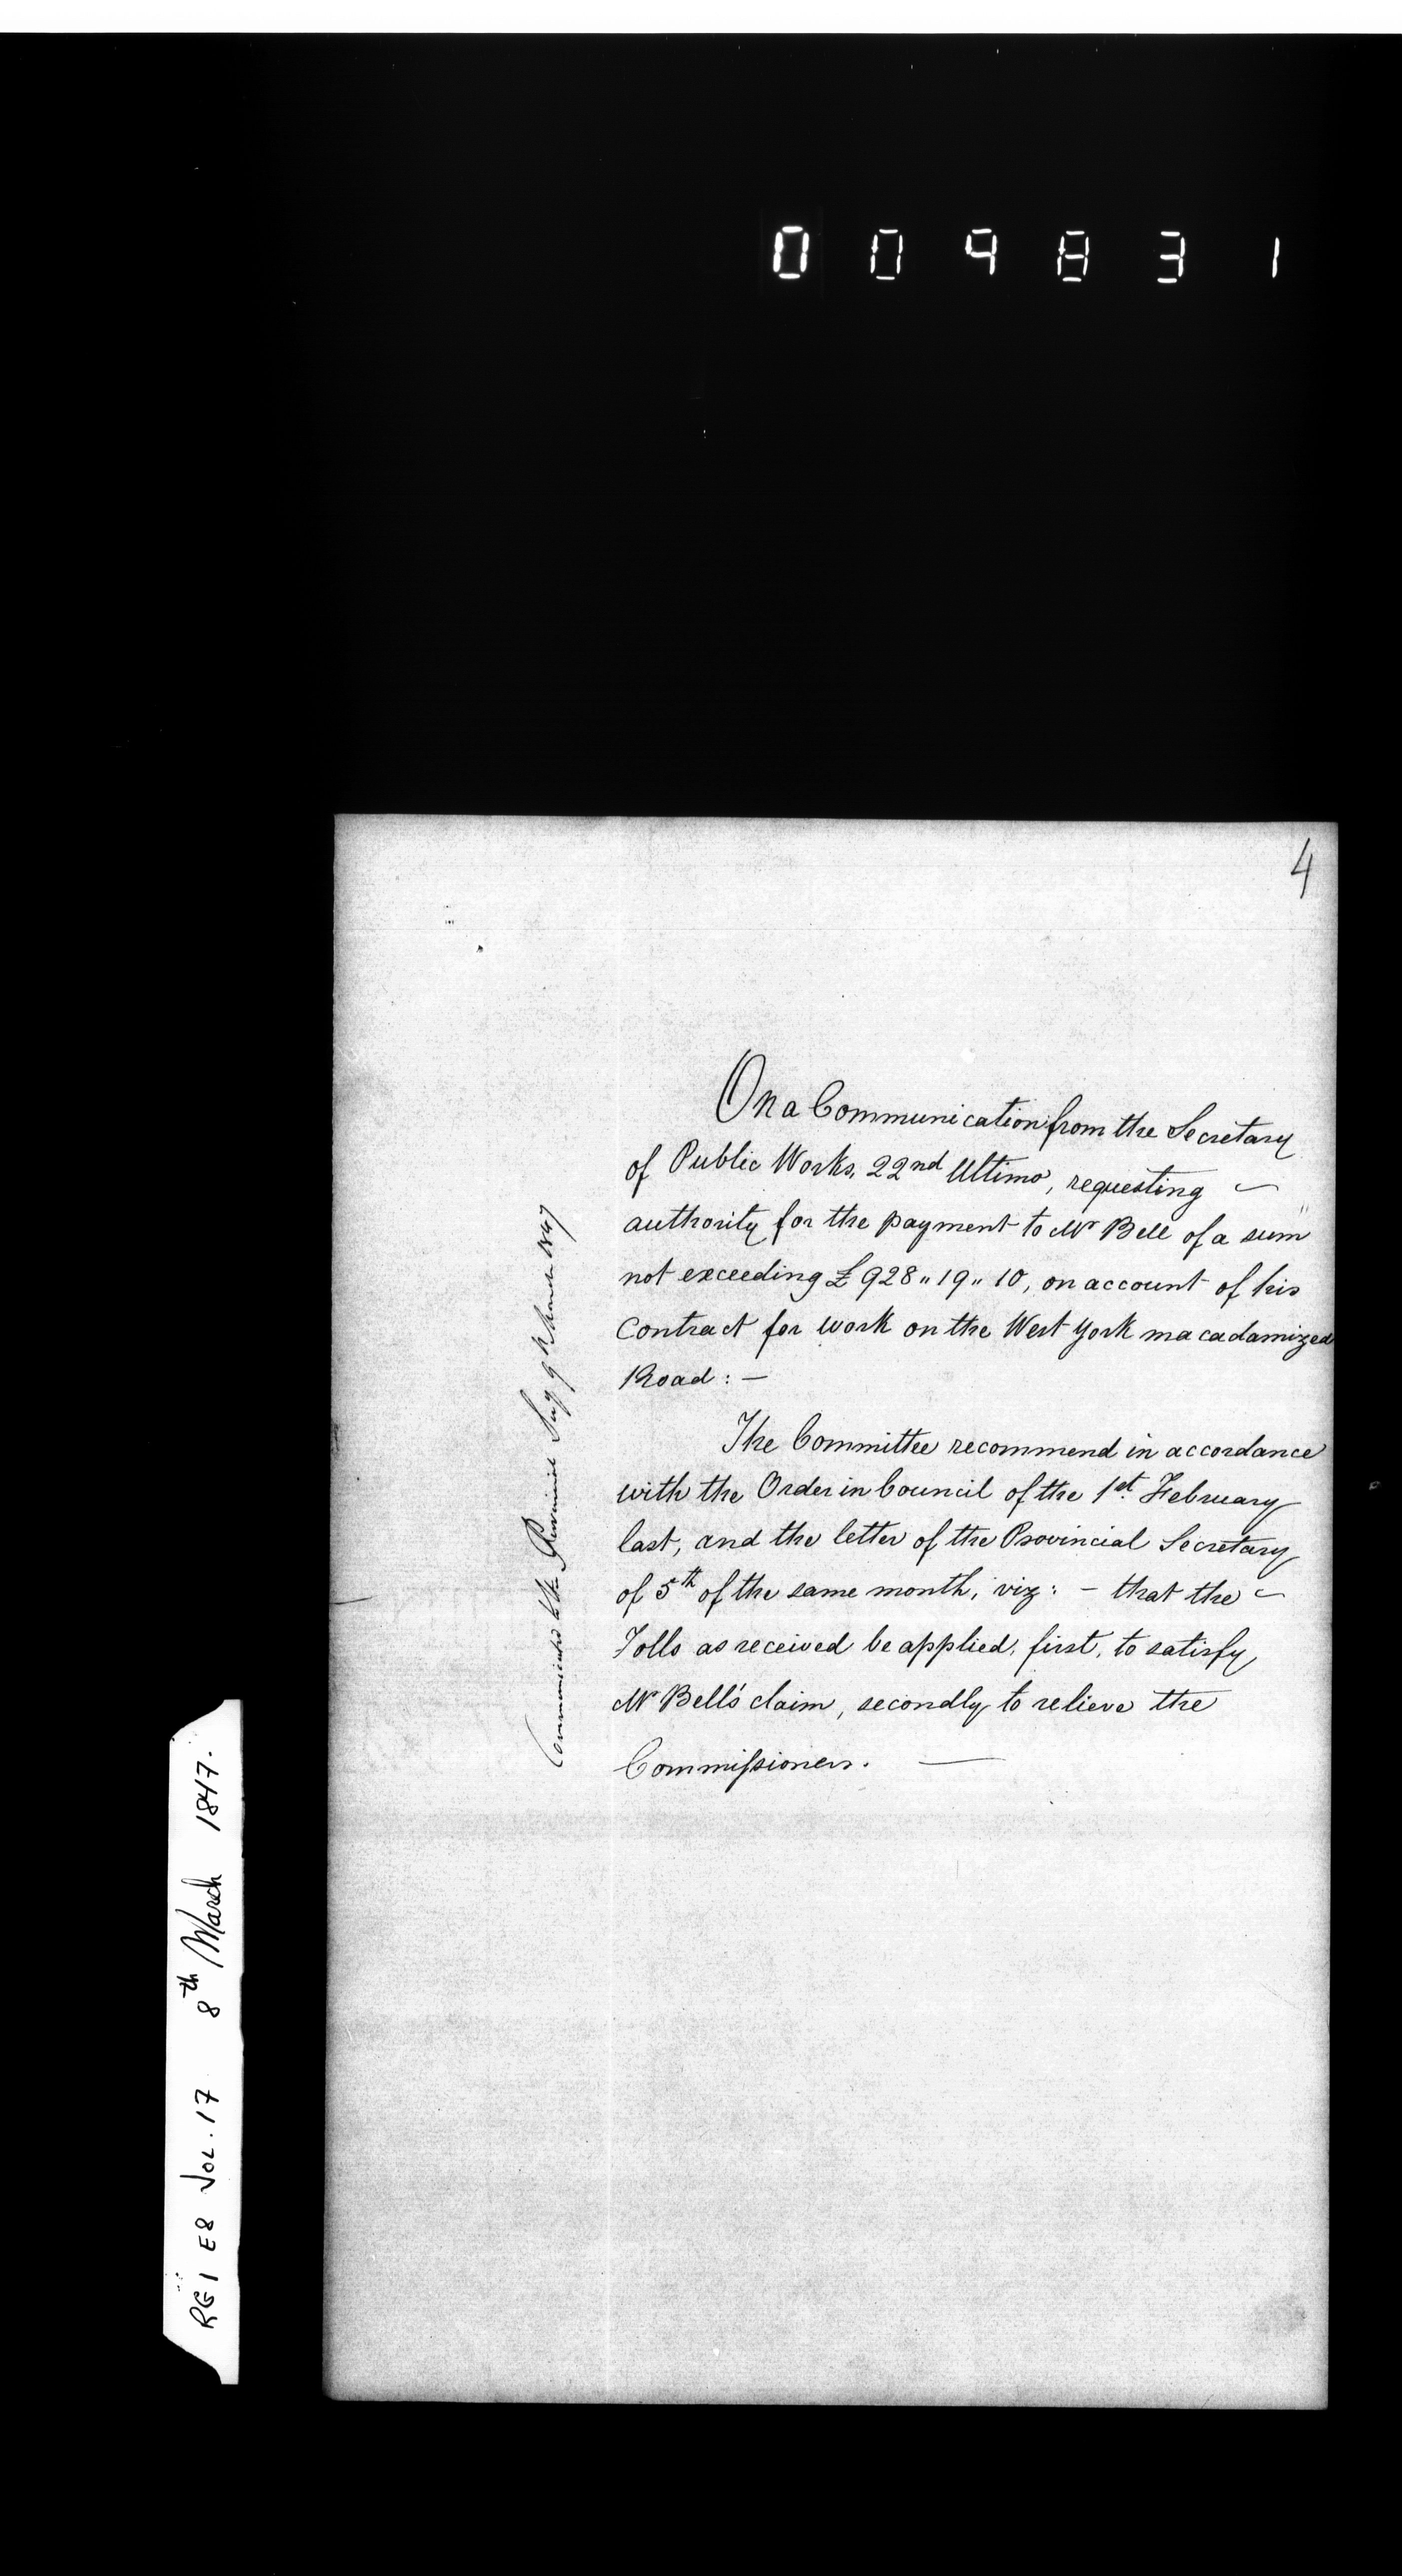 009831
4
On a Communication from the Secretary
of Public Works, 22nd Ultimo, requesting
authority for the payment to Mr Bell of a sum
not exceeding £928"19"10, on account of his
Contract for work on the West York macadamized
Road: —
The Committee recommend in accordance
with the Order in Council of the 1st. February
last, and the letter of the Provincial Secretary
of 5th of the same month, viz: - that the
Tolls as received be applied, first, to satisfy
Mr Bell's claim, secondly to relieve the
Commissioners. —
Communicated to the Provincial Secy 9th March 1847
RG1 E8 VOL. 17 8th March 1847.